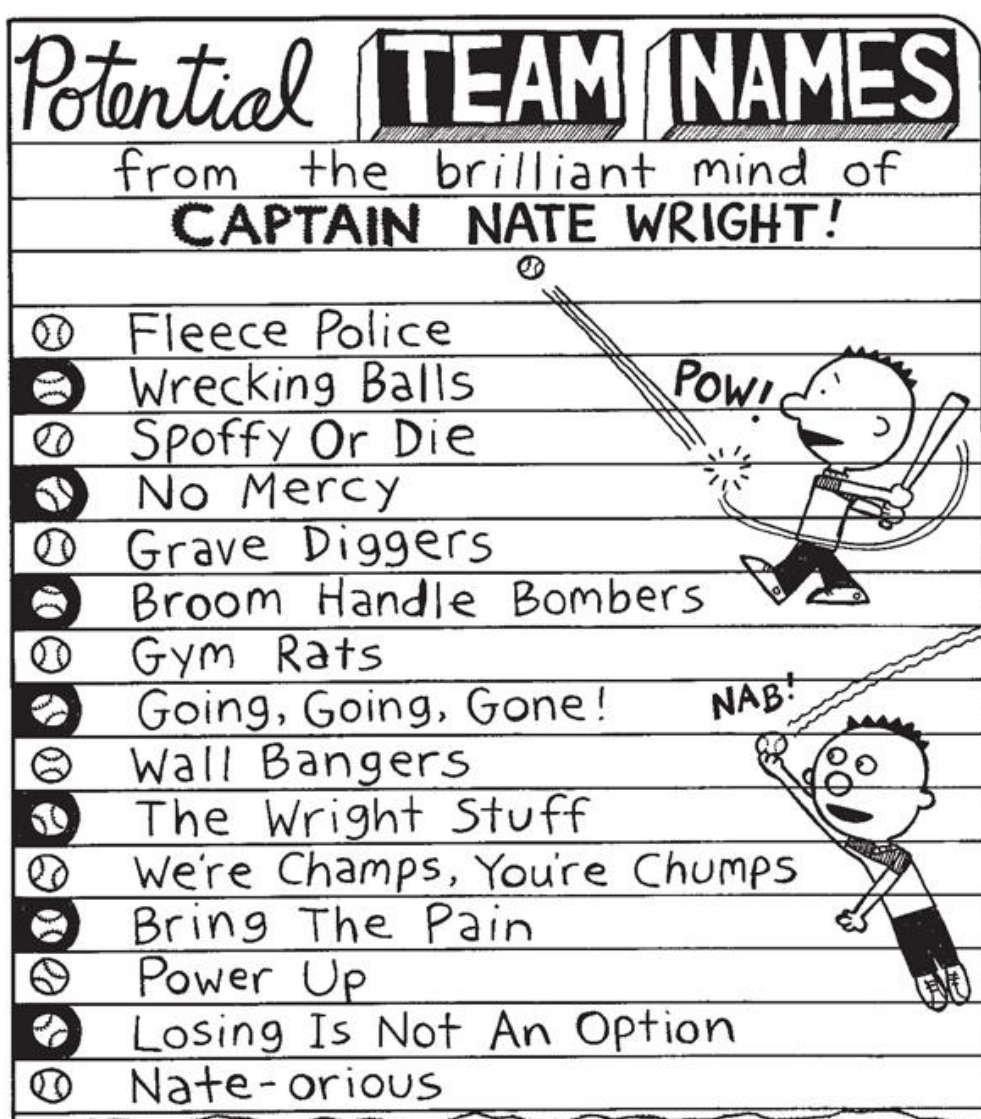 Potential TEAM NAMES
from the brilliant mind of
CAPTAIN NATE WRIGHT!
Fleece Police
Wrecking Balls
POW!
Spoffy Or Die
No Mercy
Grave Diggers
Broom Handle Bombers
Gym Rats
Going, Going, Gone!
NAB!
Wall Bangers
The Wright Stuff
We're Champs, You're Chumps
Bring The Pain
Power Up
Losing Is Not An Option
Nate-orious